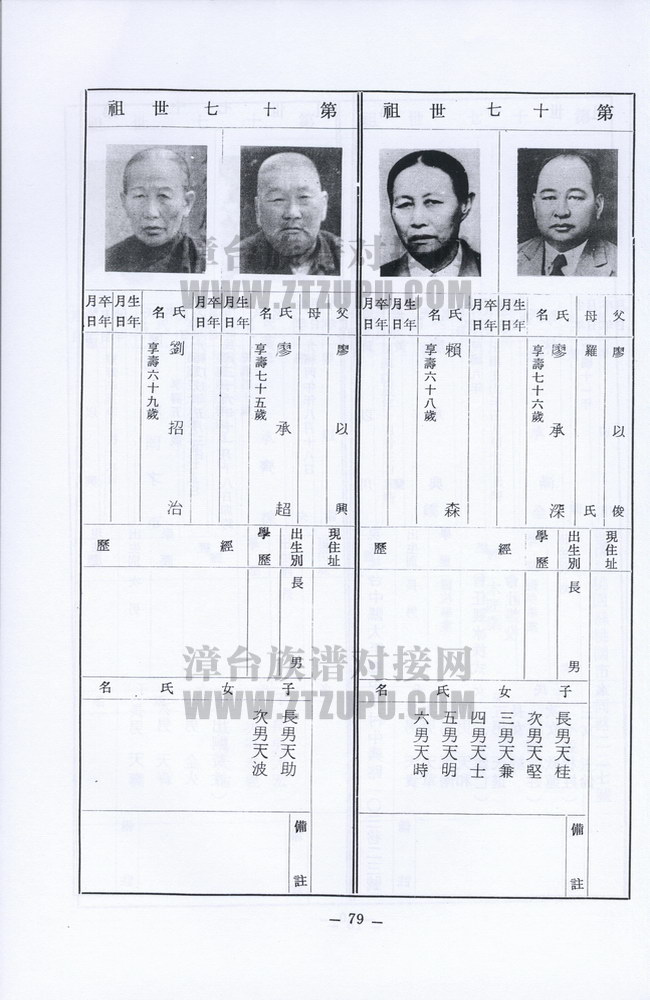 第十七世祖
父
母
氏名
生年月日
卒年月日
氏名
生年月日
卒年月日
廖以俊
羅氏
廖承深
享壽七十六歲
賴森
享壽六十八歲
現住址
出生別
學歷
經歷
長男
子女氏名
長男天桂
次男天堅
三男天兼
四男天士
五男天明
六男天時
備註
第十七世祖
父
母
氏名
生年月日
卒年月日
氏名
生年月日
卒年月日
廖以興
廖承超
享壽七十五歲
劉招治
享壽六十九歲
現住址
出生別
學歷
經歷
長男
子女氏名
長男天助
次男天波
備註
漳台族谱对接网
WWW.ZTZUPU.COM
漳台族谱对接网
WWW.ZTZUPU.COM
— 79 —